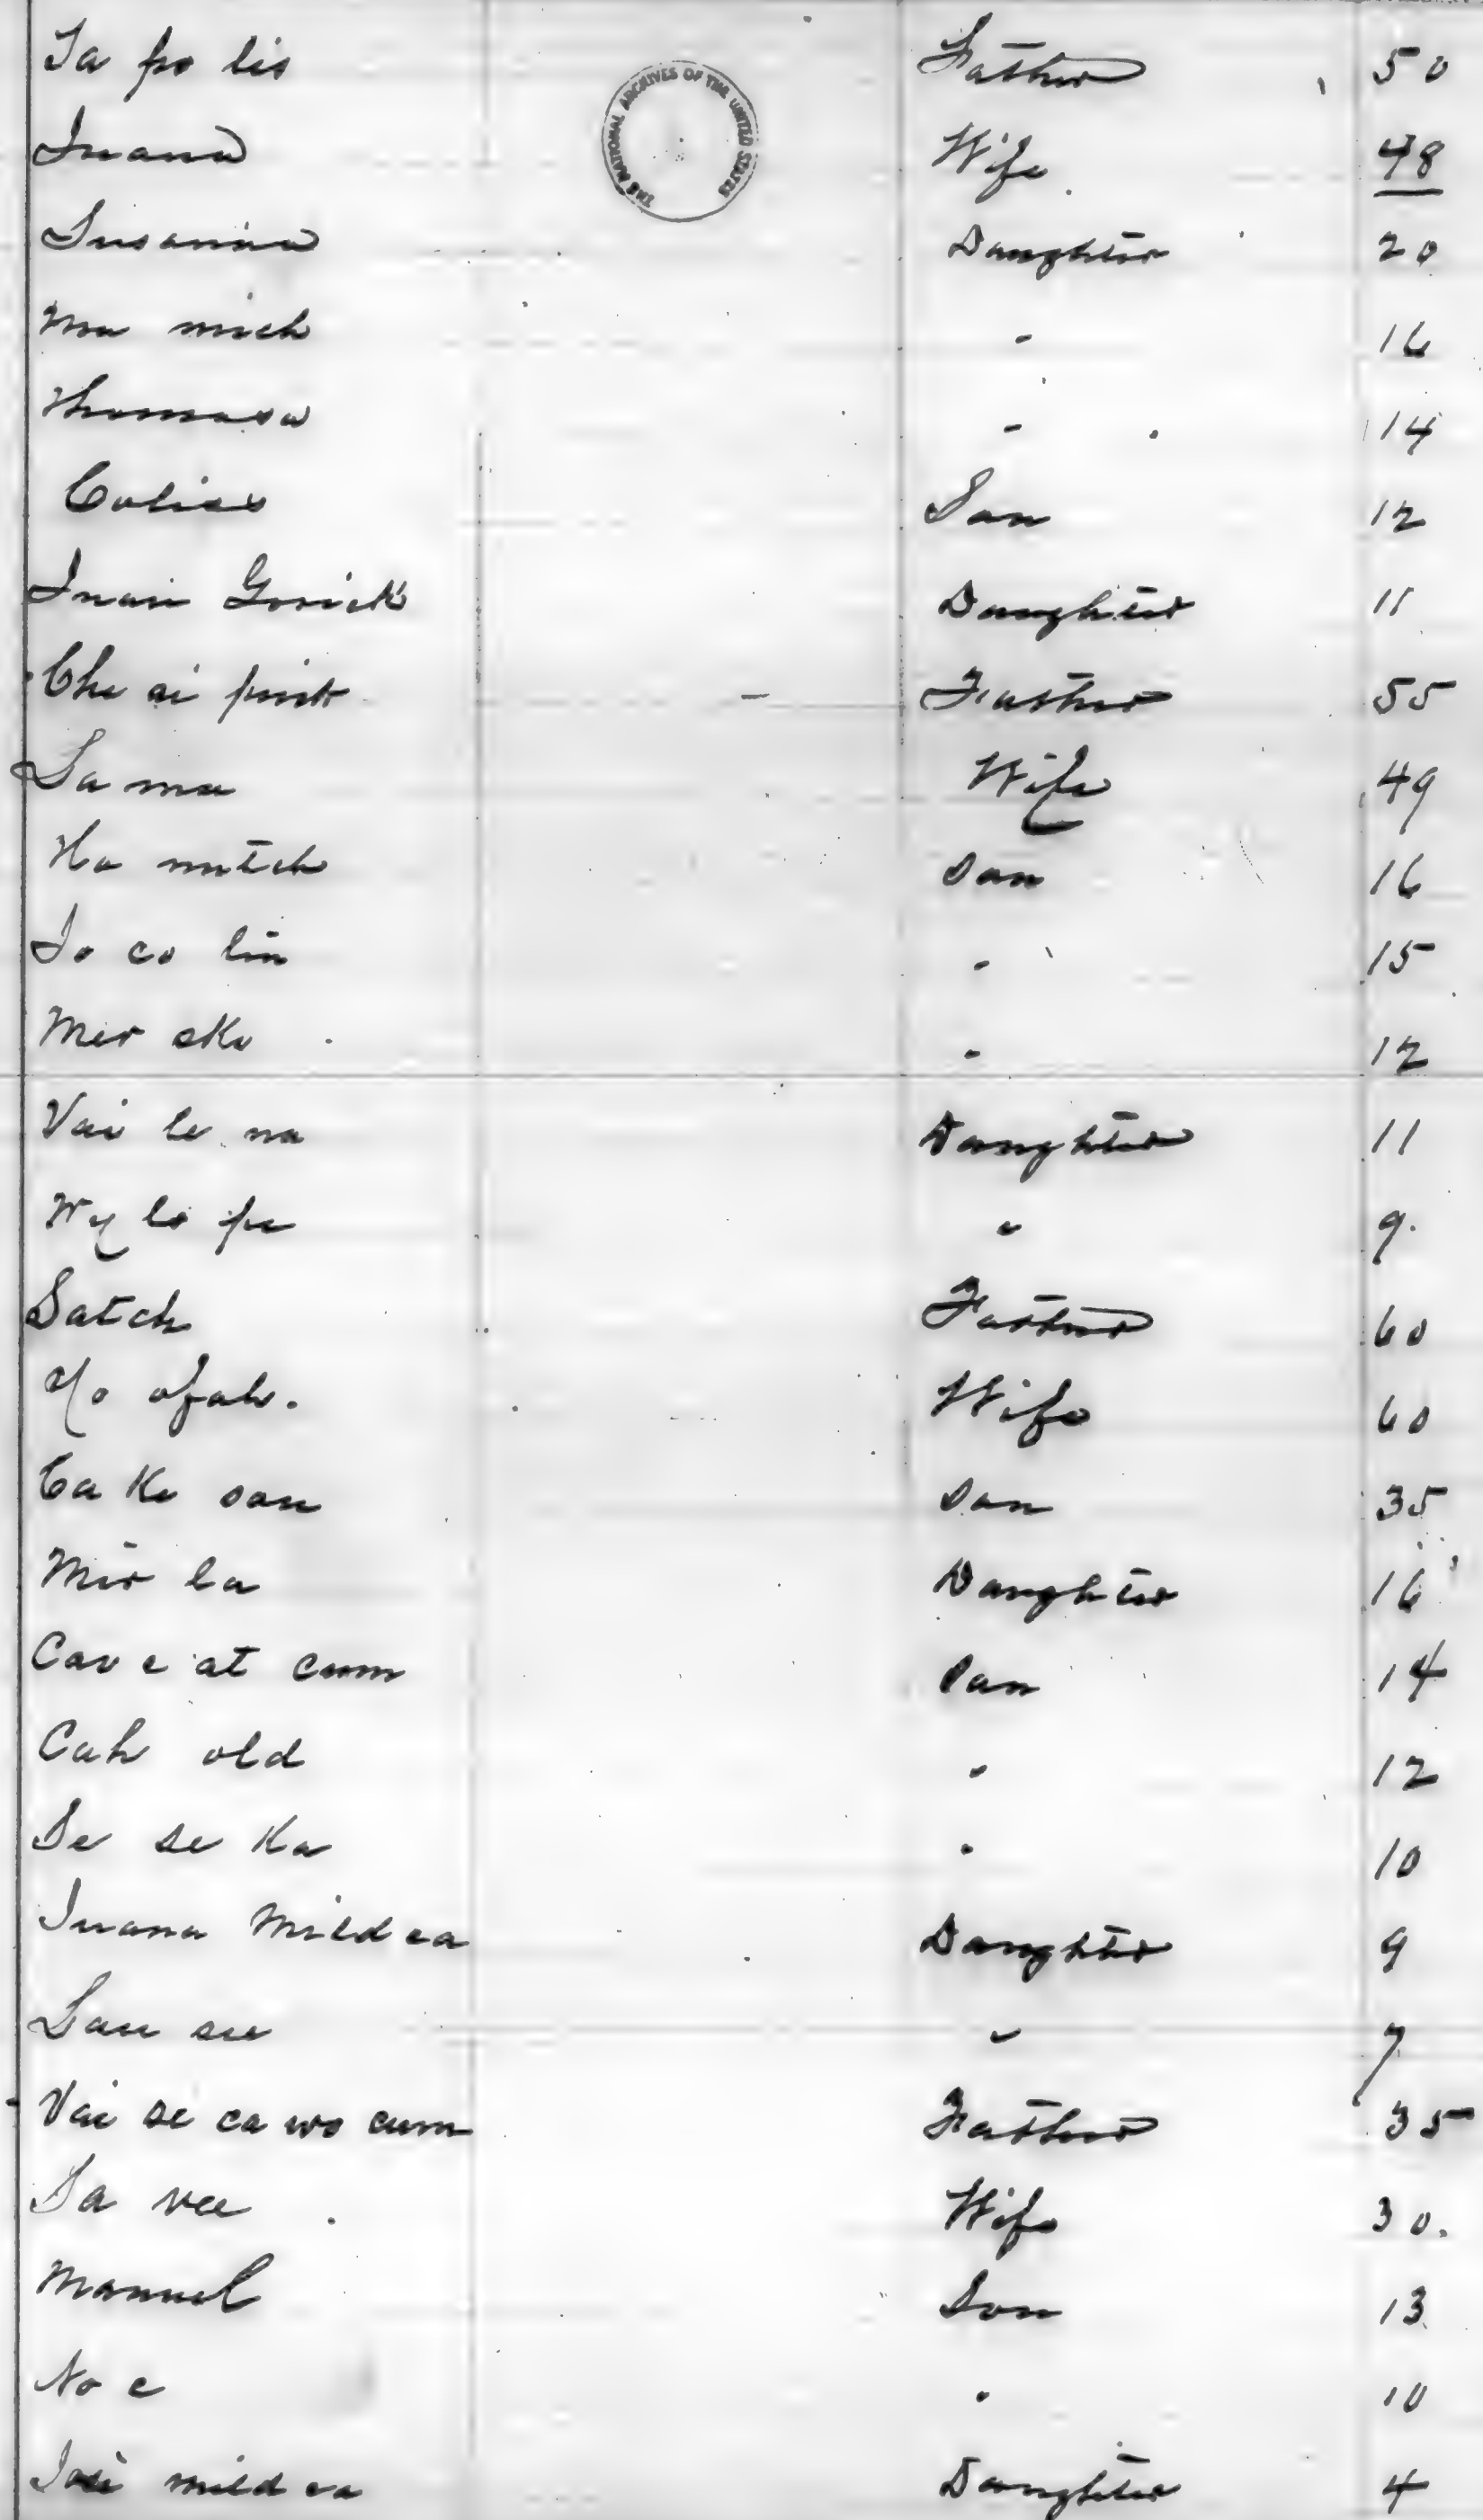 Ja po lis Father 50
THE NATIONAL ARCHIVES OF THE UNITED STATES
Juana Wife 48
Susanna Daughter 20
Mu mich " 16
Thomasa " 14
Son 12
Juan Daughter 11
Che si Father 55
Sa mu Wife 49
Ha mutch Son 16
Jo co lin " 15
Mer " 12
Vai le na Daughter 11
Wy lo pe " 9.
Satch Father 60
Wife 60
Ca Ke sou Son 35
Mir la Daughter 16
Cav e at cum Son 14
Cah old " 12
Se se Ka " 10
Juana Mildea Daughter 9
Sau see " 7
Vai se ca wo cum Father 35
Sa vee Wife 30.
Manuel Son 13
No e " 10
mild ea Daughter 4